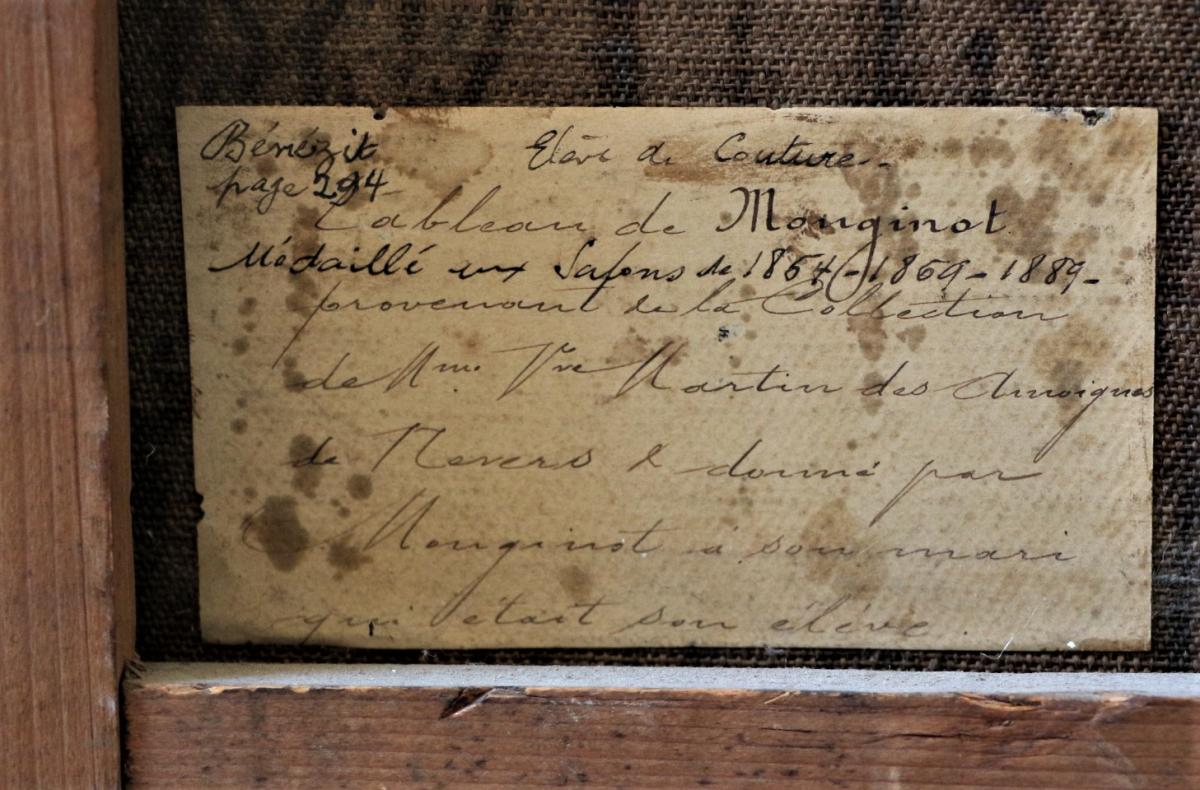 Bénézit
page 294
Elève de Couture.
Tableau de Monginot
Médaillé aux Salons de 1864-1869-1889-
provenant de la Collection
de Mme Vve Martin des Amoignes
de Nevers & donné par
C. Monginot à son mari
qui était son élève.